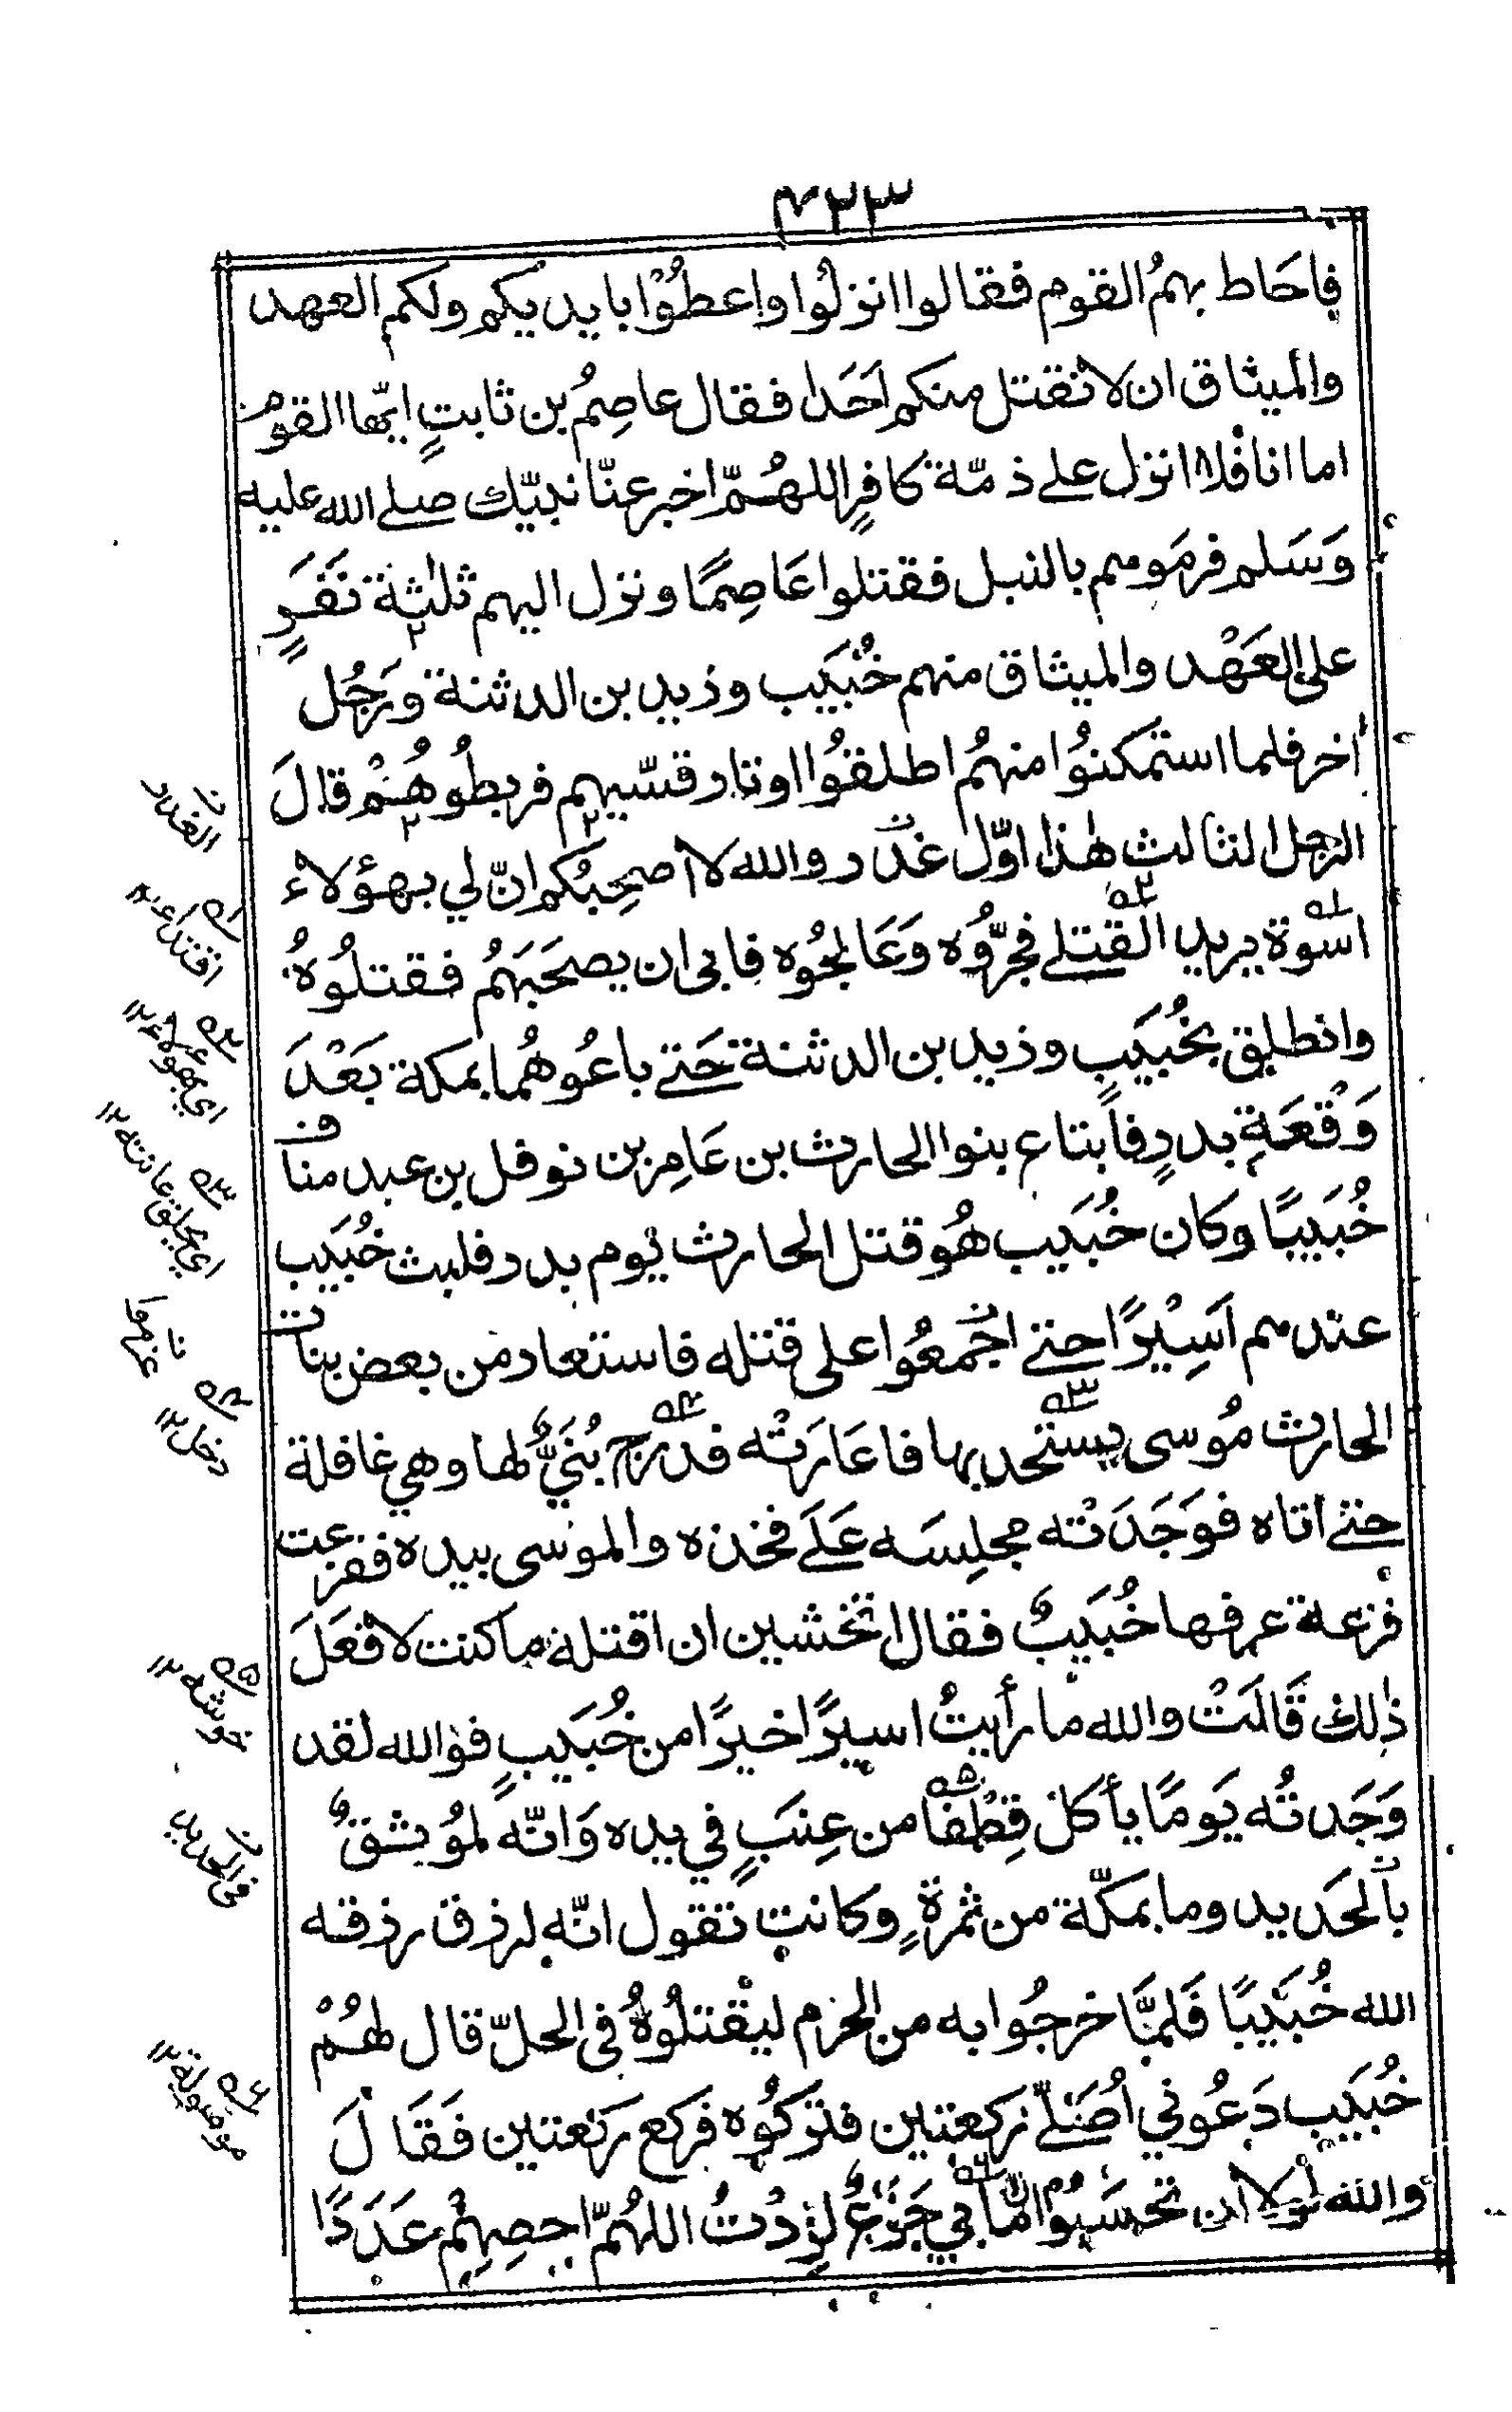 ۴۲۳
فاحَاط بهمُ القوم فقالوا انزلُوا واعطُوْا بايديكم ولكم العهد
والميثاق ان لا نقتل منكم اَحَدا فقال عاصِمُ بن ثابتٍ ايّها القوم
اما انا فلا انزل علے ذمّة كافرٍ اللهُمّ اخبر عنّا نبيّك صلے الله عليه
وَسَلم فرمَوهم بالنبل فقتلوا عَاصِمًا ونزل اليهم ثلٰثة نَفَرٍ
على العَهْد والميثاق منهم خُبَيب وزيد بن الدثنة ورَجُل
اٰخر فلما استمكنوُا منهُم اطلقوُا اوتار قسّيهم فربطُوهُمْ قالَ
الرجل الثالث هٰذا اوّل غدر والله لا اصحِبُكم انّ لي بهؤلاء
اسوة يريد القتلے فجرّوُه وَعَالجوُه فابى ان يصحَبَهُم فقتلُوهُ
وانطلق بخُبَيبٍ وزيد بن الدثنة حَتے باعُوهُما بمكة بَعْدَ
وَقْعَةِ بدرٍ فابتاع بنوا الحارث بن عَامِر بن نوفل بن عبد مناف
خُبَيبًا وكان خُبَيب هُو قتل الحارث يوم بدر فلبث خُبَيب
عندهم اَسِيْرًا حتے اجمعُوا على قتله فاستعار من بعض بنات
الحارث مُوسى يستحد بها فاعَارَتْه فدرج بُنَيٌّ لها وهي غافلة
حتے اتاه فوَجَدَتْه مجلِسَه عَلَے فخذه والموسى بيده ففزعت
فزعة عرفها خُبَيبٌ فقال اتخشين ان اقتله ما كنت لافعَلَ
ذٰلك قَالَتْ والله ما رأيتُ اسيرًا خيرًا من خُبَيبٍ فوالله لقد
وَجَدتُه يَومًا يأكل قِطْفًا من عِنَبٍ في يده وَانّه لمُوثقٌ
بالحَديد وما بمكّة من ثمرةٍ وكانت تقول انّه لرزق رزقه
الله خُبَيبًا فَلمَّا خرجُوا به من الحرم ليقْتلُوهُ فى الحلّ قال لهُمْ
خُبَيب دَعُوني اُصَلّے ركعتين فتركُوه فركع ركعتين فَقَالَ
والله لولا ان تحسَبُوا انّ ما بي جَزعٌ لزدْتُ اللهُمّ احصِهِمْ عَدَدًا
الغدر
۱ اقتداء ۱۲
۲ ۱۲
۳ اي يحلق عانته ۱۲
عزموا
۴ دخل ۱۲
۵ خوشه ۱۲
فى الحديد
۶ موصولة ۱۲